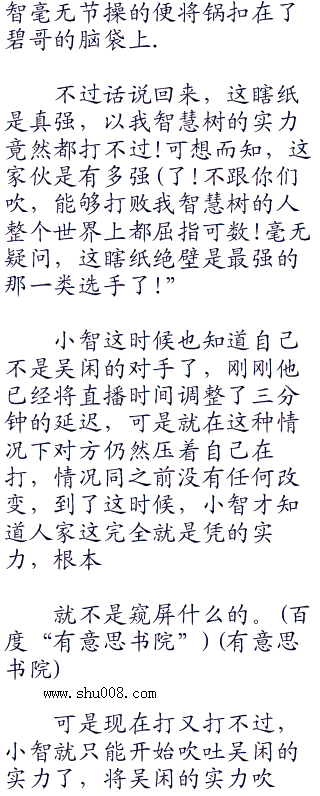 智毫无节操的便将锅扣在了
碧哥的脑袋上.
不过话说回来，这瞎纸
是真强，以我智慧树的实力
竟然都打不过!可想而知，这
家伙是有多强(了!不跟你们
吹，能够打败我智慧树的人
整个世界上都屈指可数!毫无
疑问，这瞎纸绝壁是最强的
那一类选手了!”
小智这时候也知道自己
不是吴闲的对手了，刚刚他
已经将直播时间调整了三分
钟的延迟，可是就在这种情
况下对方仍然压着自己在
打，情况同之前没有任何改
变，到了这时候，小智才知
道人家这完全就是凭的实
力，根本
就不是窥屏什么的。(百
度“有意思书院”)(有意思
书院)
www.shu008.com
可是现在打又打不过，
小智就只能开始吹吐吴闲的
实力了，将吴闲的实力吹